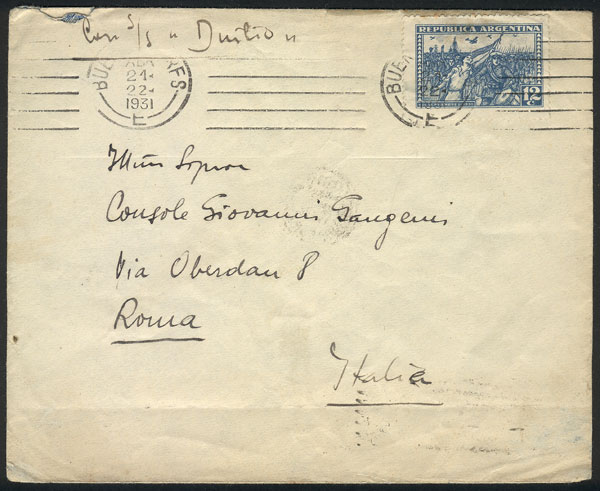 Con S/S "Duilio"
REPUBLICA ARGENTINA
12
BUENOS AIRES
21
22
1931
E
BUEN
22
E
Illmo Signor
Console Giovanni Gangemi
Via Oberdan 8
Roma
Italia